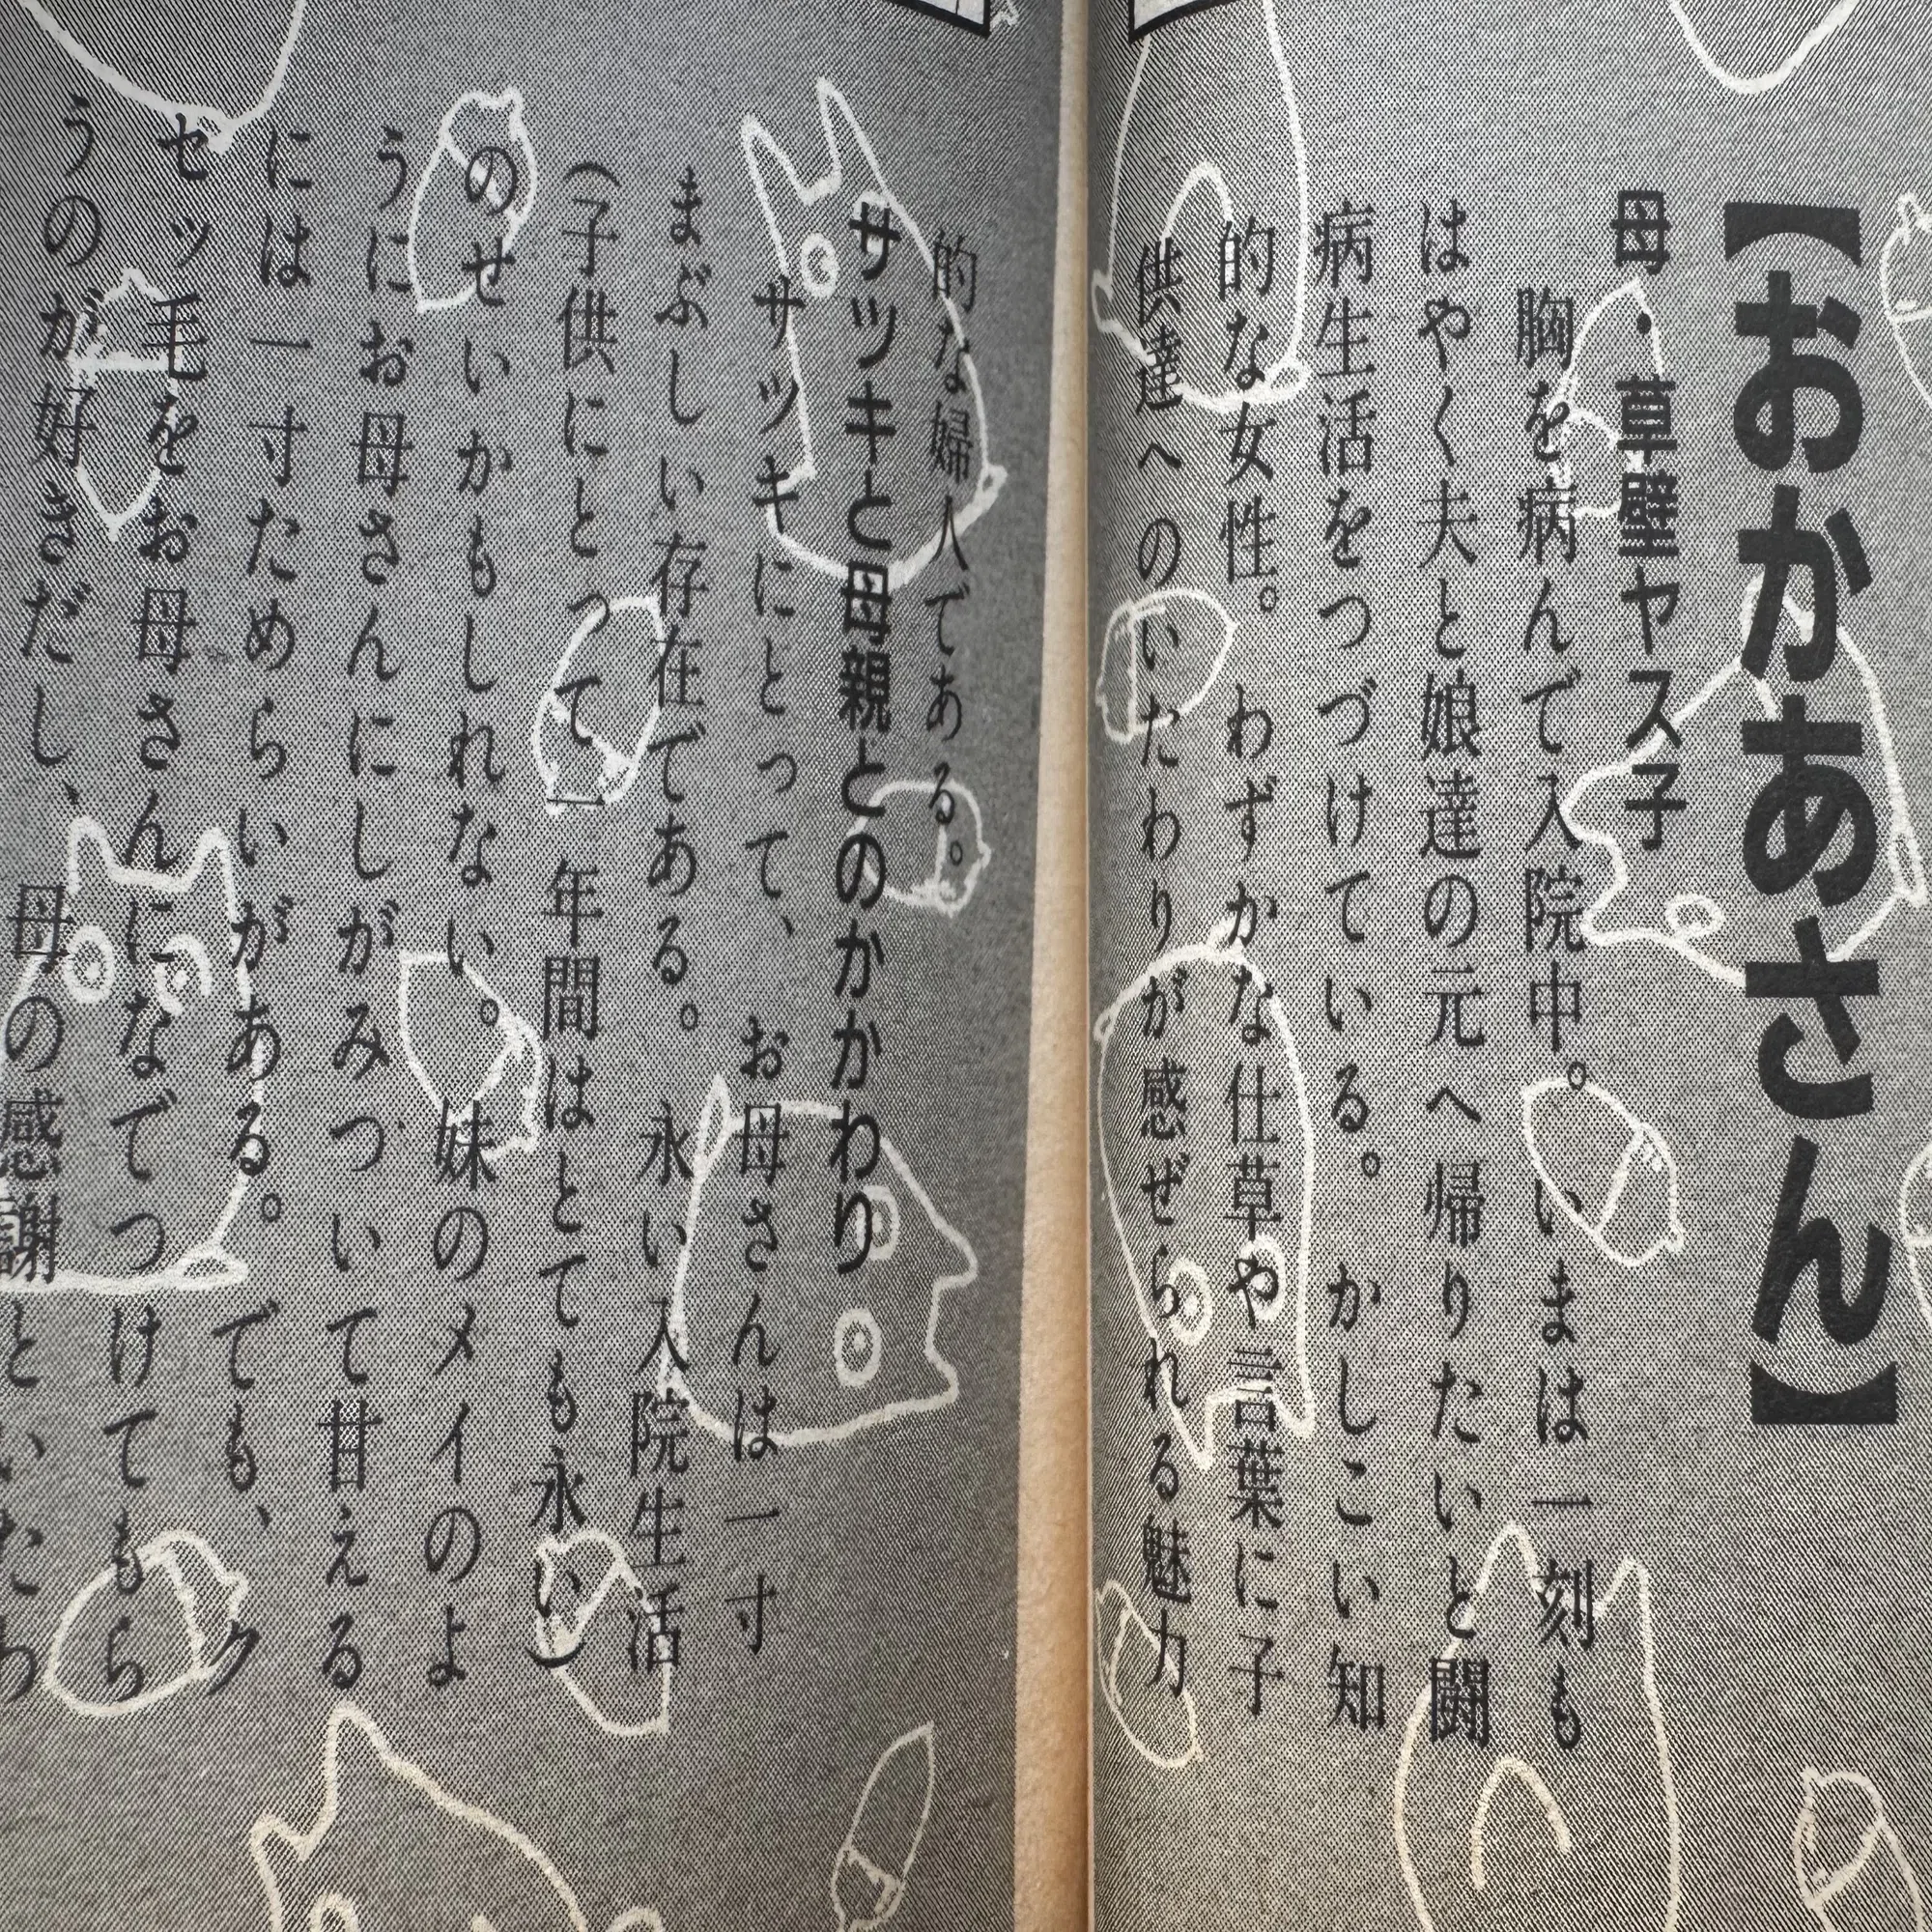 【おかあさん】
母・草壁ヤス子
胸を病んで入院中。いまは一刻も
はやく夫と娘達の元へ帰りたいと闘
病生活をつづけている。かしこい知
的な女性。わずかな仕草や言葉に子
供達へのいたわりが感ぜられる魅力
的な婦人である。
サツキと母親とのかかわり
サツキにとって、お母さんは一寸
まぶしい存在である。永い入院生活
(子供にとって一年間はとても永い)
のせいかもしれない。妹のメイのよ
うにお母さんにしがみついて甘える
には一寸ためらいがある。でも、ク
セッ毛をお母さんになでつけてもら
うのが好きだし、
母の感謝といたわ